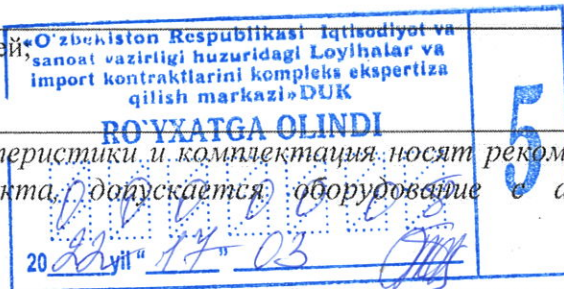 ей,
«O'zbekiston Respublikasi Iqtisodiyot va
sanoat vazirligi huzuridagi Loyihalar va
import kontraktlarini kompleks ekspertiza
qilish markazi» DUK
RO'YXATGA OLINDI
5
теристики и комплектация носят реком
кта, допускается оборудование с а
20 22 yil " 17 " 03